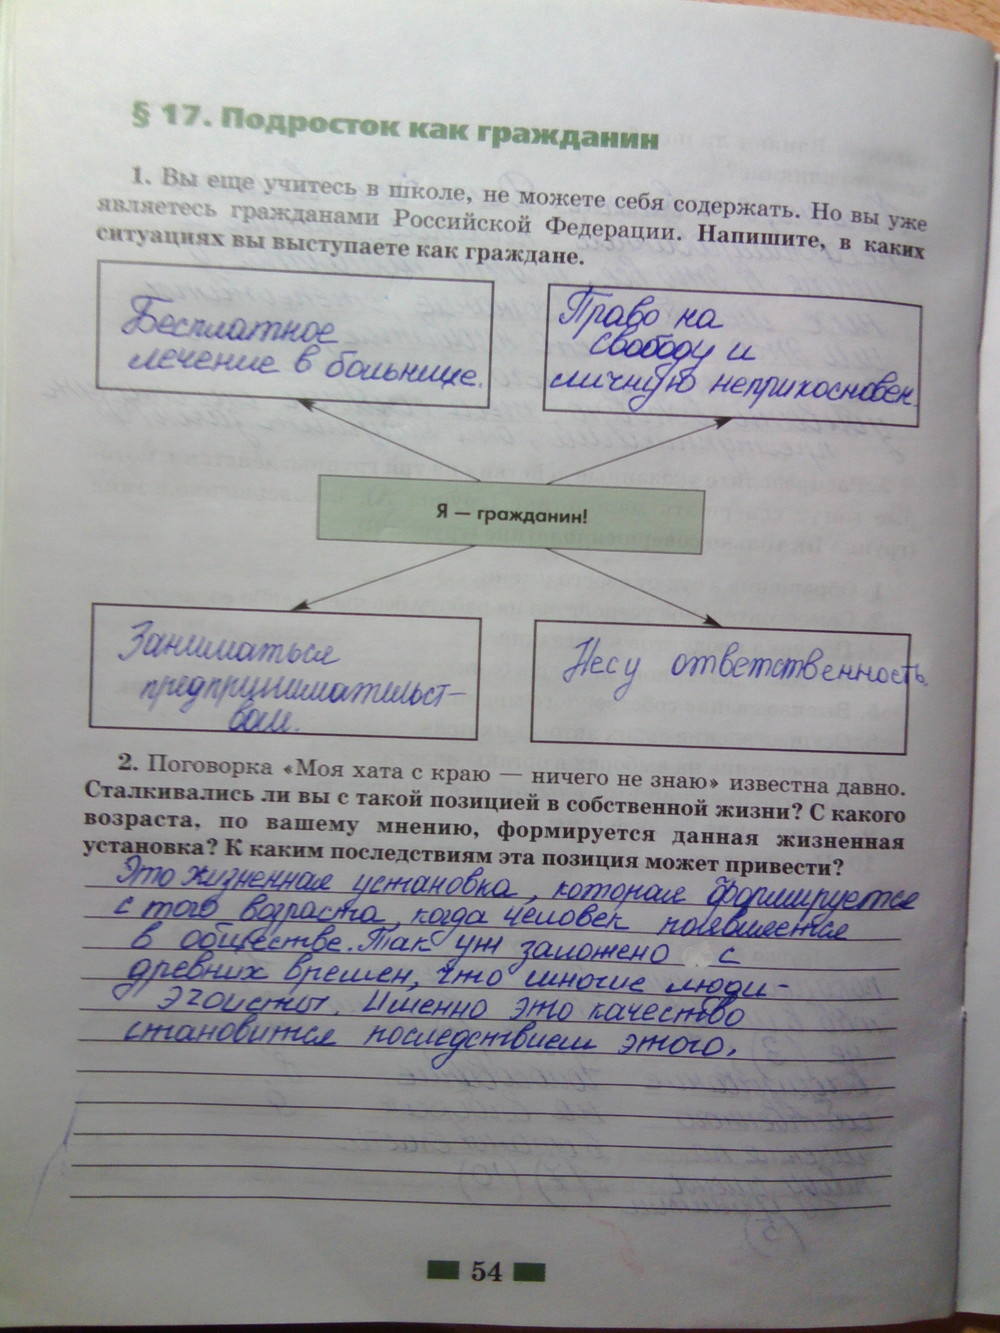 § 17. Подросток как гражданин
1. Вы еще учитесь в школе, не можете себя содержать. Но вы уже
являетесь гражданами Российской Федерации. Напишите, в каких
ситуациях вы выступаете как граждане.
Бесплатное
лечение в больнице.
Право на
свободу и
личную неприкосновен.
Я — гражданин!
Заниматься
предпринимательст-
вом.
Несу ответственность.
2. Поговорка «Моя хата с краю — ничего не знаю» известна давно.
Сталкивались ли вы с такой позицией в собственной жизни? С какого
возраста, по вашему мнению, формируется данная жизненная
установка? К каким последствиям эта позиция может привести?
Это жизненная установка, которая формируется
с того возраста, когда человек появляется
в обществе. Так уж заложено с
древних времен, что многие люди-
эгоисты. Именно это качество
становится последствием этого.
54